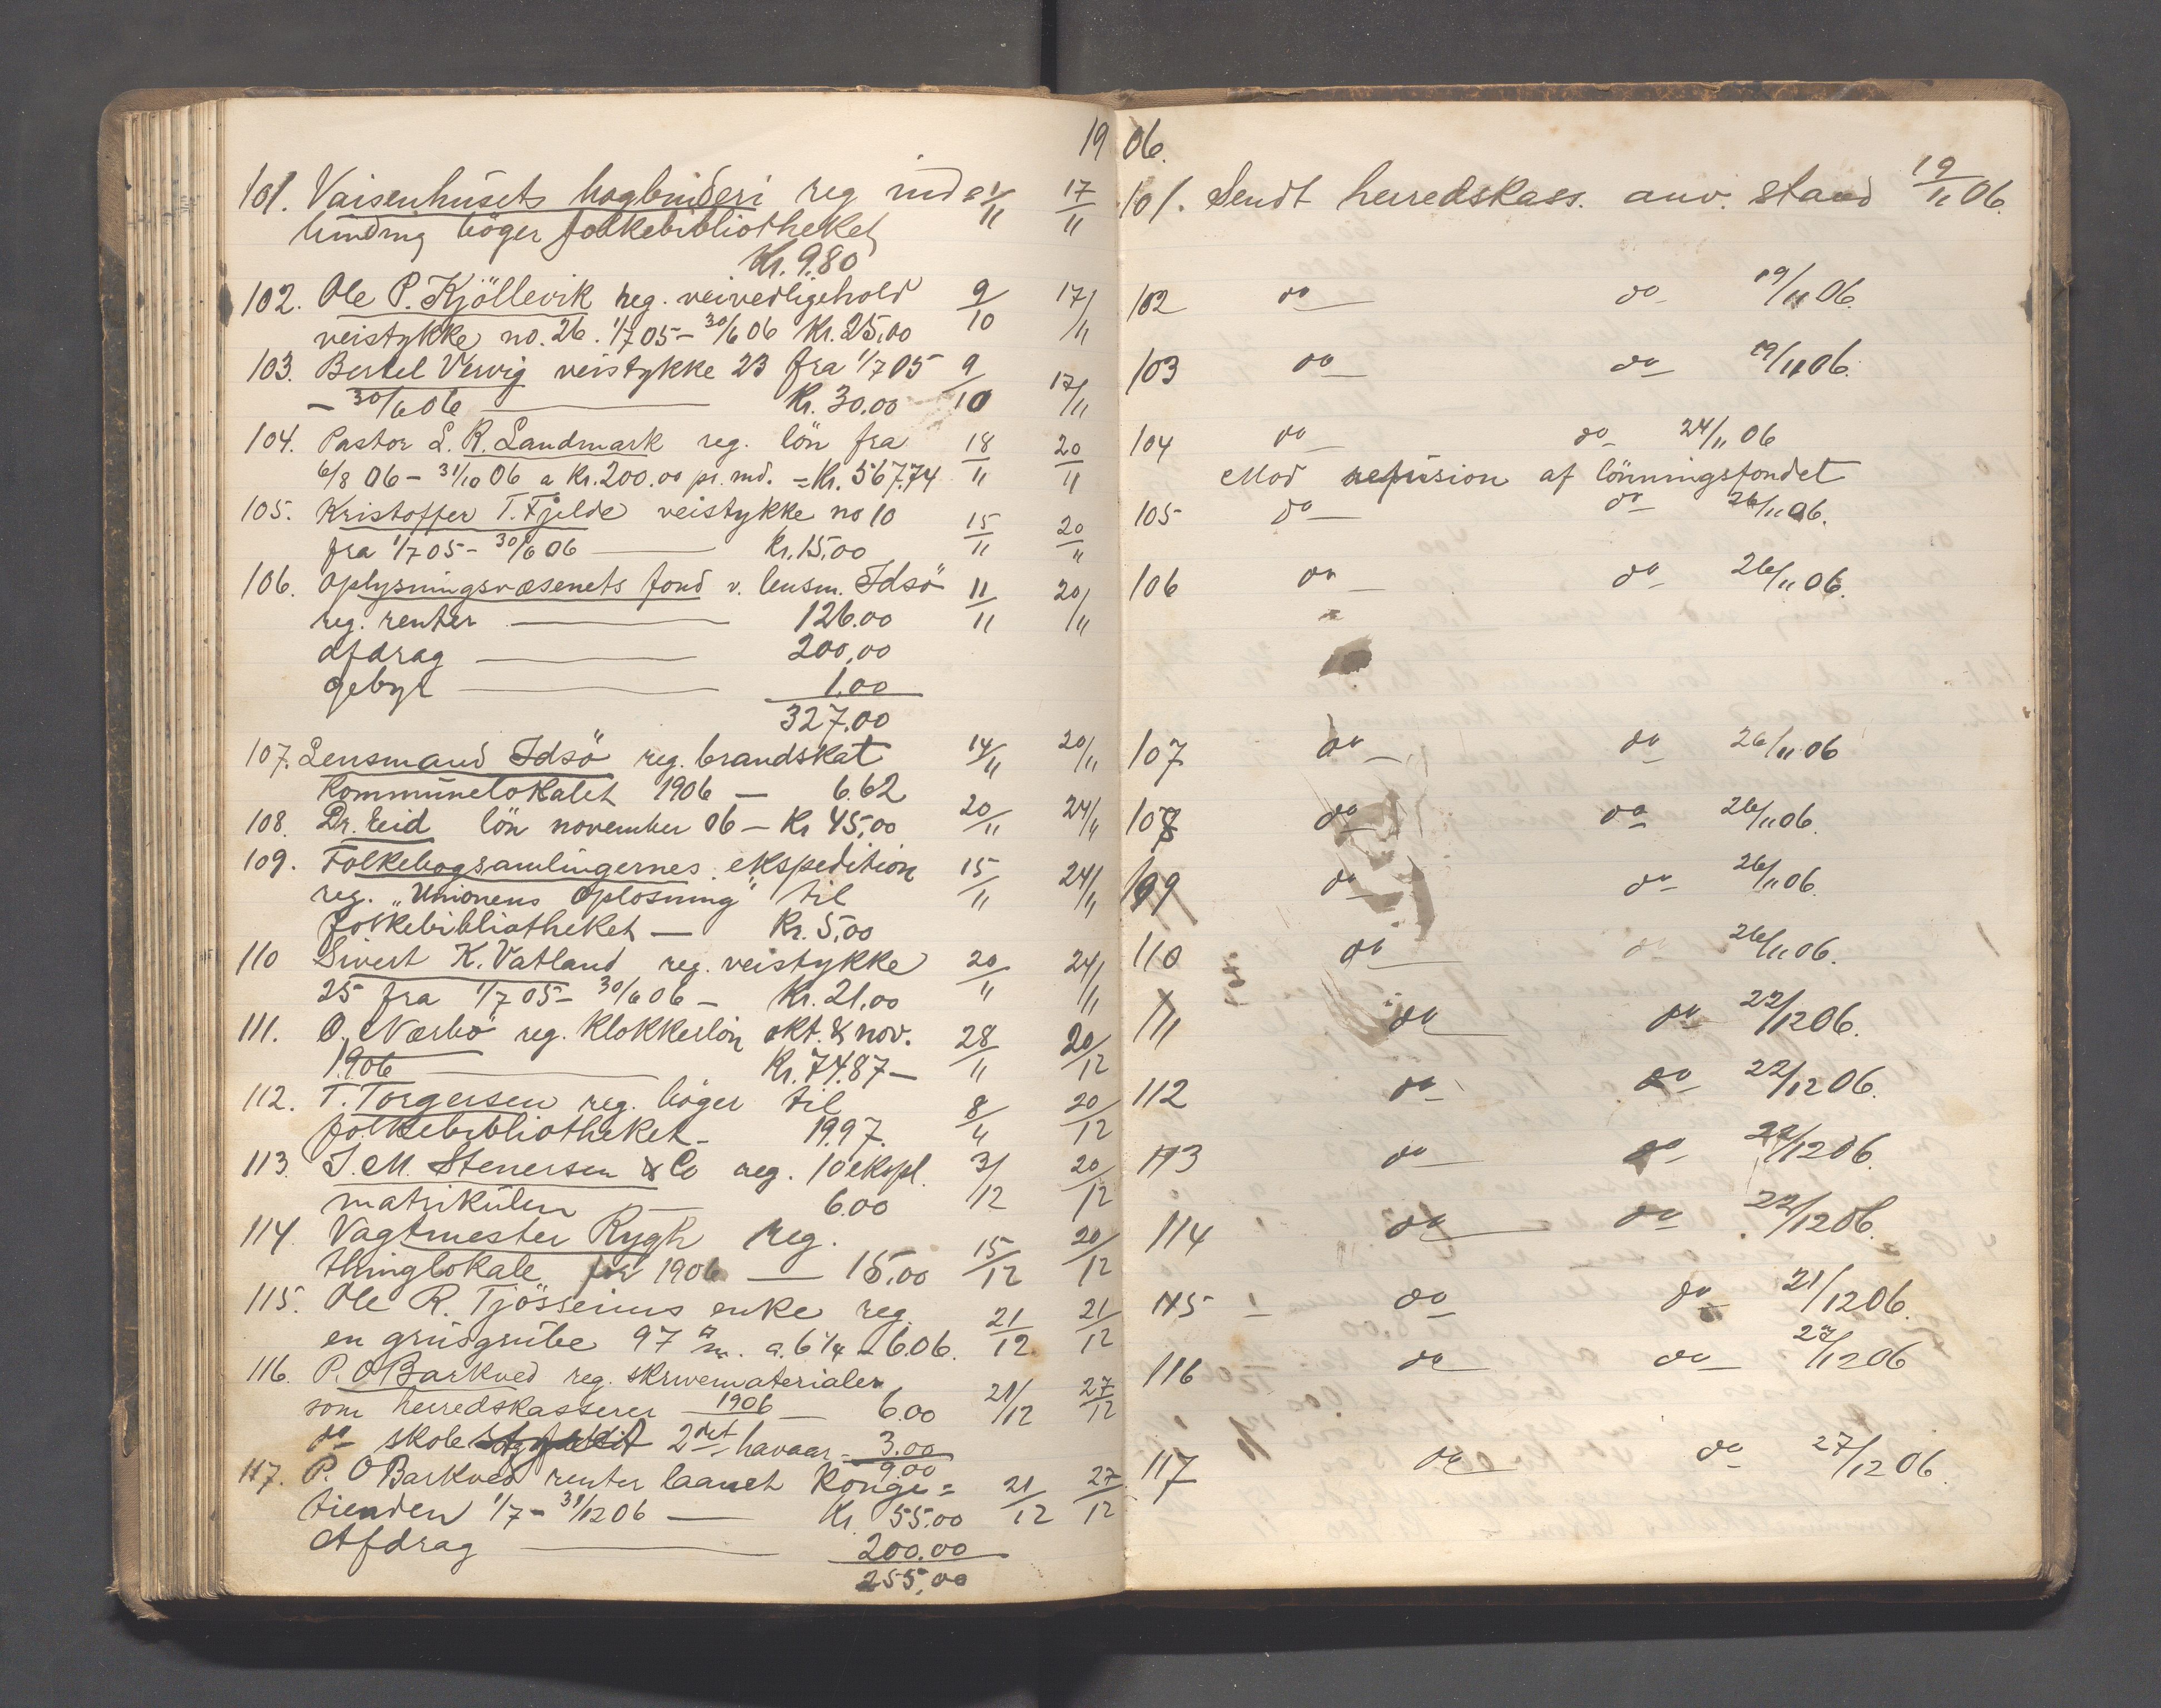 1906.
101. Vaisenhusets bogbinderi reg ind= 1/11 17/11
binding böger folkebibliotheket
Kr. 9.80
102. Ole P. Kjöllevik reg. veivedligehold 9/10 17/11
veistykke no. 26. 1/7 05 - 30/6 06 Kr. 25,00
103. Bertel Vervig veistykke 23 fra 1/7 05 9/10 17/11
- 30/6 06 — Kr. 30.00
104. Pastor L. R. Landmark reg. lön fra 18/11 20/11
6/8 06 - 31/10 06 a Kr. 200.00 pr. md. = Kr. 567.74
105. Kristoffer T. Fjelde veistykke no 10 15/11 20/11
fra 1/7 05 - 30/6 06 — Kr. 15,00
106. Oplysningsvæsenets fond v. lensm. Idsö 11/11 20/11
reg. renter — 126.00
afdrag — 200,00
gebyr — 1.00
327,00
107. Lensmand Idsö reg. brandskat 14/11 20/11
Kommunelokalet 1906 — 6.62
108. Dr. Eid lön november 06 — Kr 45,00 20/11 24/11
109. Folkebogsamlingernes ekspedition 15/11 24/11
reg. „Unionens Oplosning" til
folkebibliotheket — Kr. 5,00
110 Sivert K. Vatland reg. veistykke 20/11 24/11
25 fra 1/7 05 - 30/6 06 — Kr. 21.00
111. O. Nærbö reg. Klokkerlön okt. & nov. 28/11 20/12
1906 — Kr. 74.87 —
112. T. Torgersen reg. böger til 8/11 20/12
folkebibliotheket — 19.97.
113. J. M. Stenersen & Co reg. 10 ekspl. 3/12 20/12
matrikulen — 6.00
114. Vagtmester Rygh reg. 15/12 20/12
thinglokale for 1906 — 15,00
115. Ole R. Tjösseims enke reg. 21/12 21/12
en grusgrube 97 □ m. a. 6 1/4 - 6.06.
116. P. O Barkved reg. skrivematerialer 21/12 27/12
som herredskasserer 1906 — 6.00
do skole 2det havaar - 3.00
9.00
117. P. O Barkved renter laanet Konge= 21/12 27/12
tienden 1/7 - 31/12 06 — Kr. 55.00
Afdrag — 200.00
255,00
101. Sendt herredskass. anv. stand 19/11 06.
102 do — do — 19/11 06.
103 do — do — 19/11 06.
104 do — do — 24/11 06
Mod refusion af lönningsfondet
105 do — do — 26/11 06.
106 do — do — 26/11 06.
107 do — do 26/11 06
108 do do 26/11 06.
109 do — do — 26/11 06.
110 do — do 26/11 06.
111 do — do — 22/12 06.
112 do — do 22/12 06.
113 do — do 22/12 06.
114 do — do — 22/12 06.
115 do do 21/12 06.
116 do do — 27/12 06
117 do — do — 27/12 06.